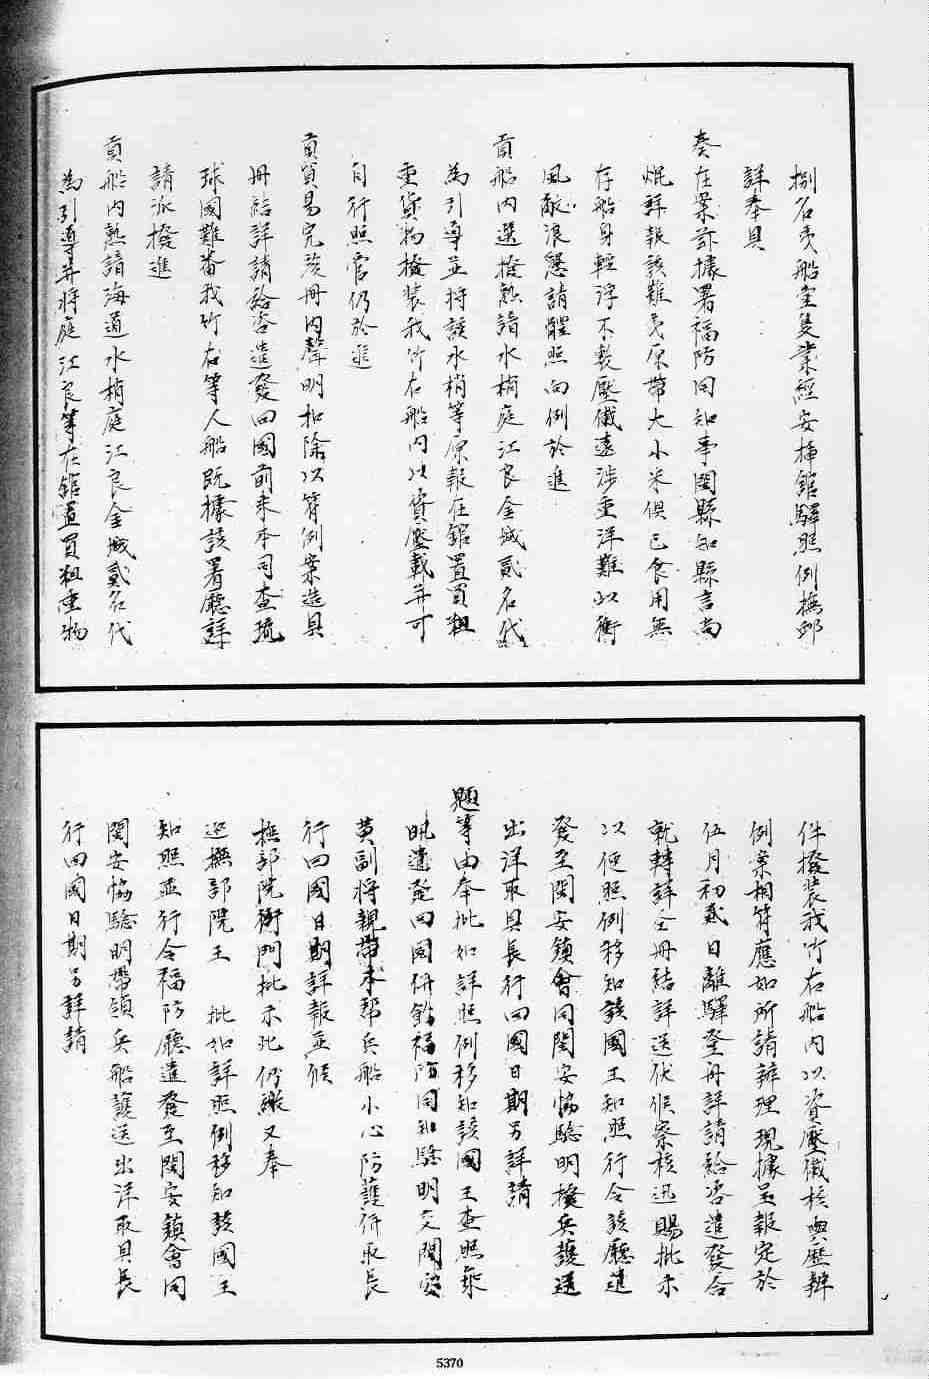 捌名夷船壹隻業經安插館驛照例撫卹
詳奉具
奏在案茲據署福防同知事閩縣知縣言尚
焜詳報該難夷原帶大小米俱已食用無
存船身輕浮不敷壓儎遠涉重洋難以衝
風敵浪懇請俯照向例於進
貢船內選撥熟諳水梢庭江良金城貳名代
為引導並將該水梢等原報在館置買粗
重貨物撥裝我竹右船內以資壓載并可
自行照管仍於進
貢貿易完竣冊內聲明扣除以符例案造具
冊結詳請給咨遣發回國前來本司查琉
球國難番我竹右等人船既據該署廳詳
請派撥進
貢船內熟諳海道水梢庭江良金城貳名代
為引導并將庭江良等在館置買粗重物
件撥裝我竹右船內以資壓儎核與歷辦
例案相符應如所請辦理現據呈報定於
伍月初貳日離驛登舟詳請給咨遣發合
就轉詳仝冊結詳送伏候察核迅賜批示
以便照例移知該國王知照行令該廳遣
發至閩安鎮會同閩安協驗明撥兵護送
出洋取具長行回國日期另詳請
題等由奉批如詳照例移知該國王查照飛
飭遣發回國併飭福防同知驗明交閩安
黃副將親帶本幫兵船小心防護併取長
行回國日期詳報並候
撫部院衙門批示此仍繳又奉
巡撫部院王　批如詳照例移知該國王
知照並行令福防廳遣發至閩安鎮會同
閩安協驗明帶領兵船護送出洋取具長
行回國日期另詳請
5370